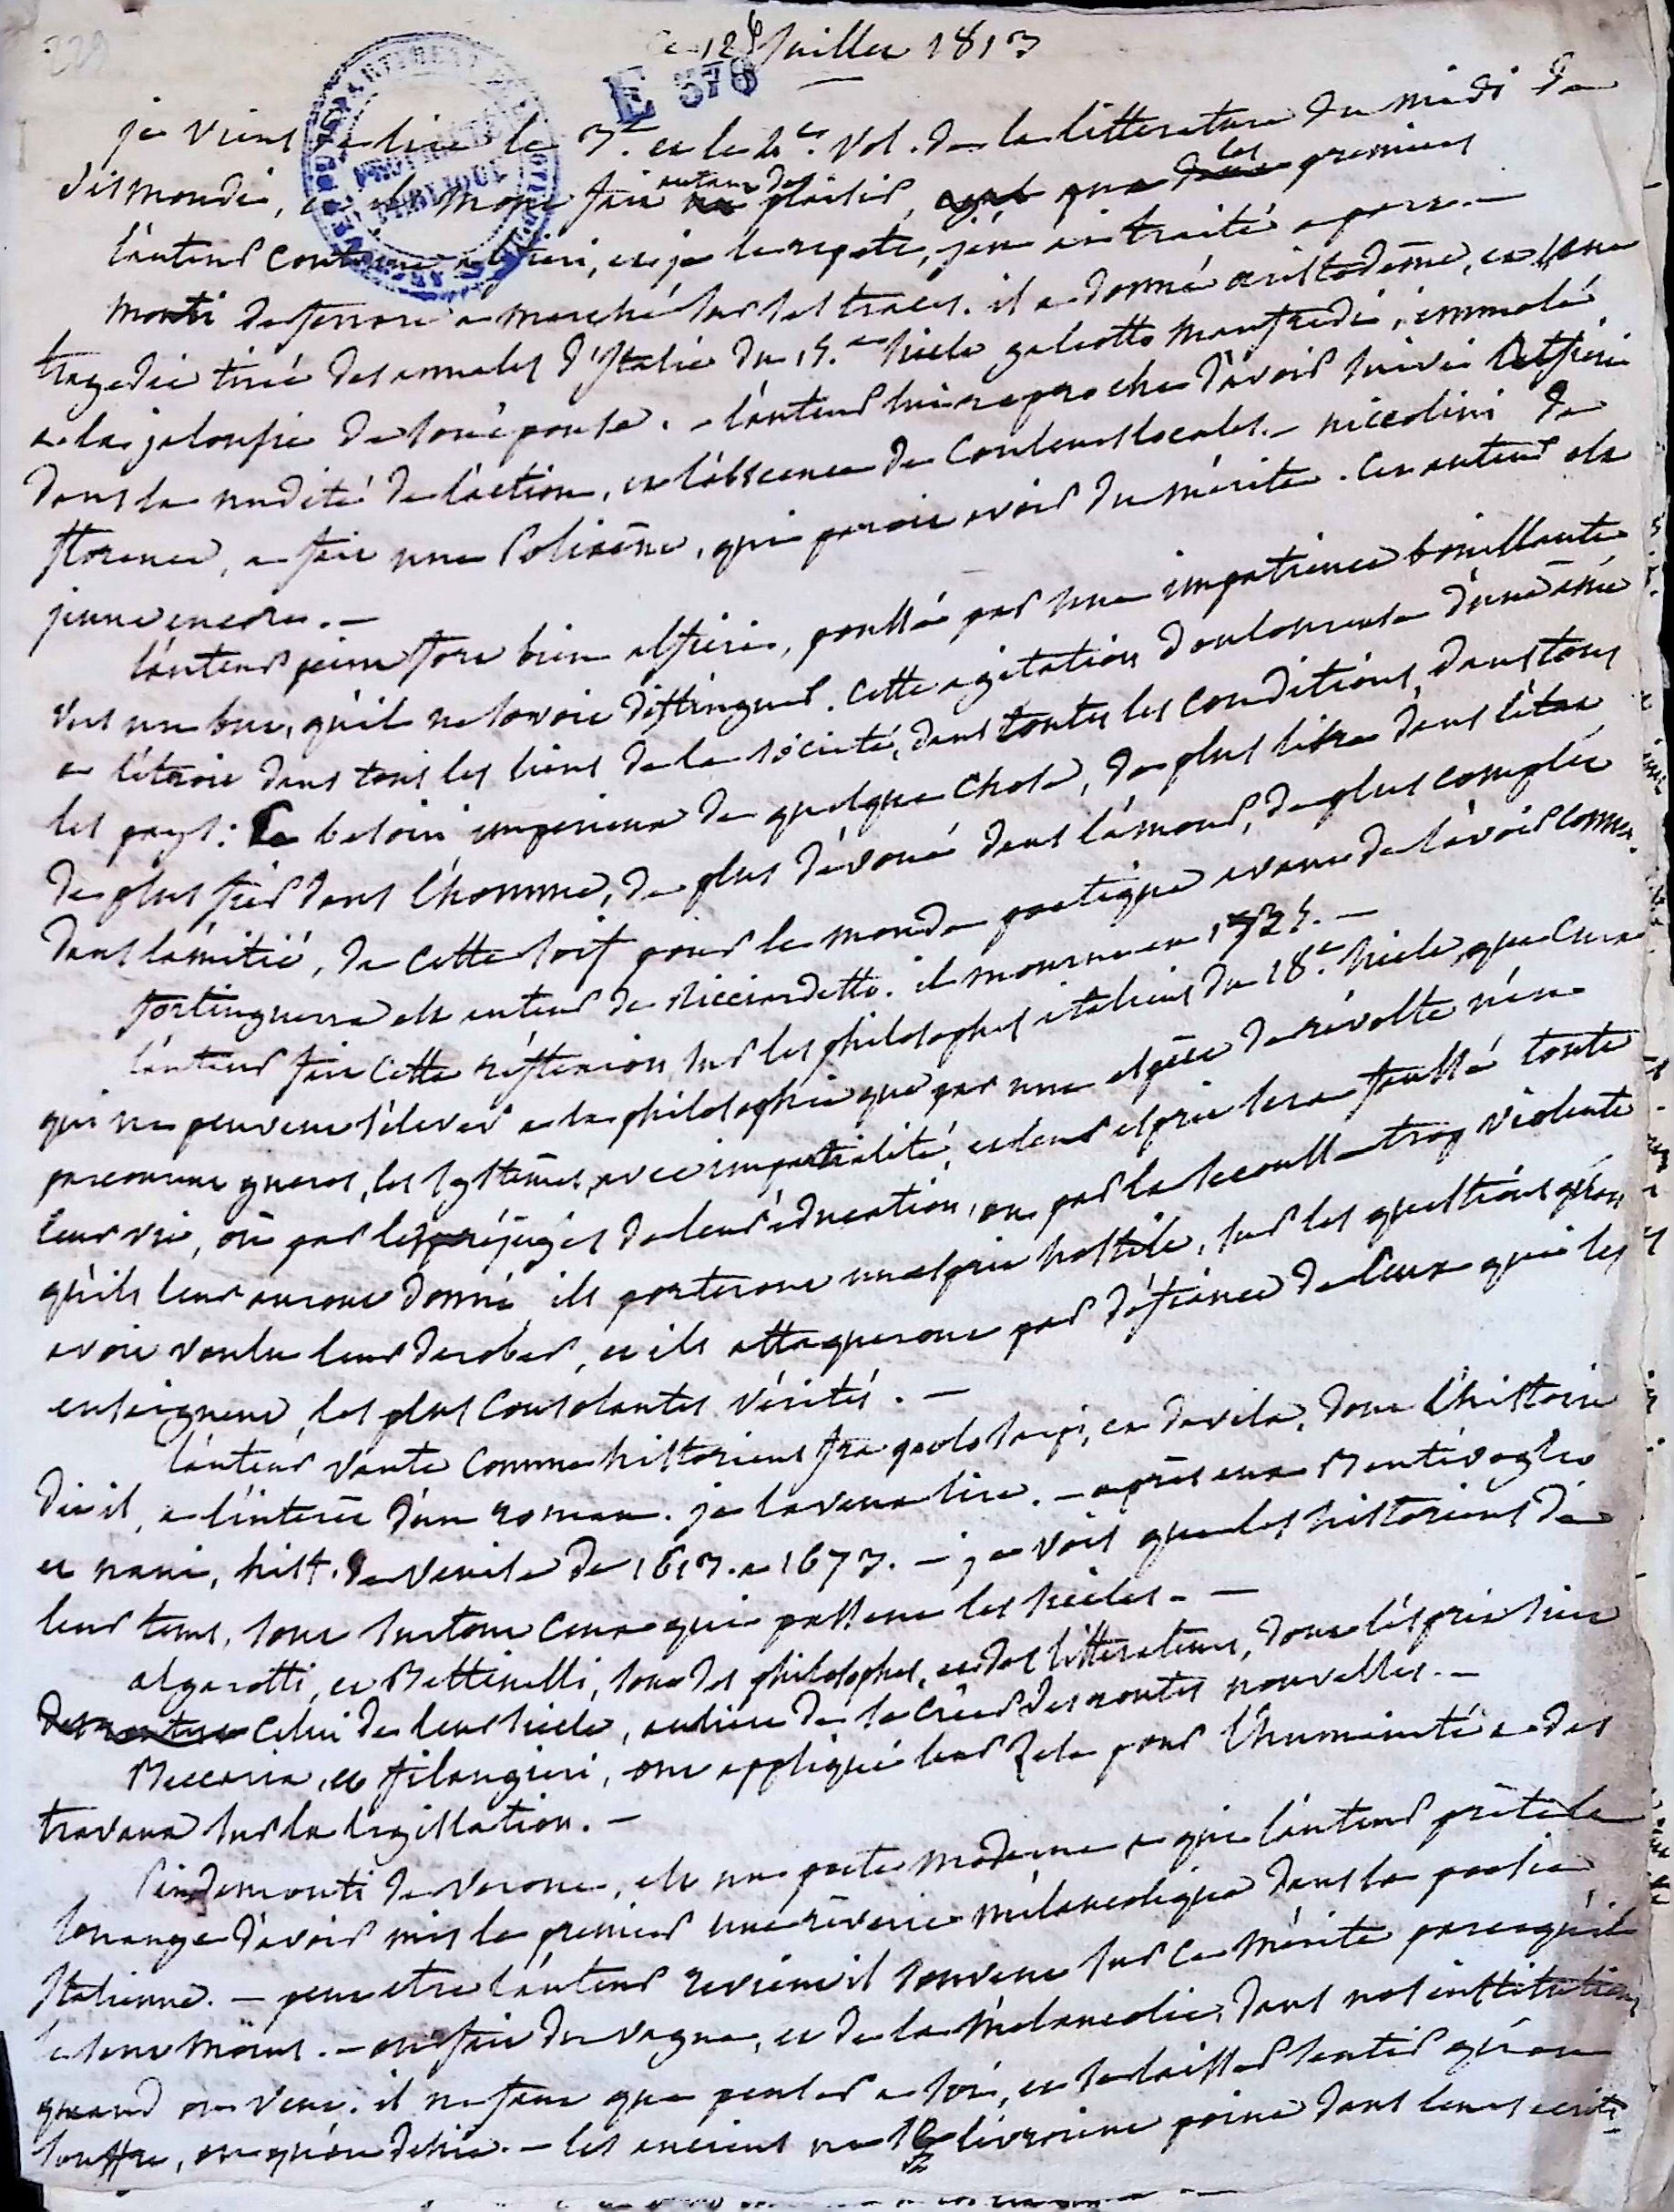 229
Ce 12 Juillet 1813
E 378
PROPRIÉTÉ PUBLIQUE
je viens de lire le 3.e et le 4.e vol. de la litterature du midi de
Sismondi, et ils m'ont fait autant de plaisir, que les premiers
l'auteur continue alfieri, et je le repete, j'en ai traité a part. —
Monti de ferrare a marché sur ses traces. il a donné aristodême, et une
tragedie tirée des annales d'Italie du 15.e siecle galeotto Manfredi, immolé
a la jalousie de son épouse. – l'auteur lui reproche d'avoir suivi Alfieri
dans la nudité de l'action, et l'absence de couleurs locales. – niccolini de
florence, a fait une Polixène, qui parait avoir du mérite. Cet auteur est
jeune encore. —
l'auteur peint fort bien alfieri, poussé par une impatience bouillante
vers un but, qu'il ne savoit distinguer. Cette agitation douloureuse d'une âme
a l'étroit dans tous les liens de la société, dans toutes les conditions, dans tous
les pays : Ce besoin imperieux de quelque chose, de plus libre dans l'état
de plus fier dans l'homme, de plus dévoué dans l'amour, de plus complet
dans l'amitié, de cette soif pour le monde poetique avant de l'avoir connu.
fortinguerra est auteur de Ricciardetto. il mourut en 1735. —
l'auteur fait cette réflexion sur les philosophes italiens du 18.e siecle, que ceux
qui ne peuvent s'élever a la philosophie que par une espèce de révolte n'en
parcourent gueres, les systêmes, avec impartialité, et leur esprit sera faussé toute
leur vie, où par les préjugés de leur éducation, ou par la secousse trop violente
qu'ils leur auront donné, ils porteront un esprit hostile, sur les questions qu'on
avoit voulu leur derober, et ils attaqueront par défiance de ceux qui les
enseignent, les plus consolantes vérités. —
l'auteur vante comme historiens fra paolo Sarpi, et davila, dont l'histoire
dit il, a l'intérêt d'un roman. je la veux lire. – après eux Bentivoglio
et nani, hist. de Venise de 1613. a 1673. – je vois que les historiens de
leur tems, sont surtout ceux qui passent les siècles. —
algarotti, et Bettinelli, sont des philosophes, et des litterateurs, dont l'esprit suit
celui de leur siecle, au lieu de se créer des routes nouvelles. —
Beccaria, et filangieri, ont appliqué leur zele pour l'humanité a des
travaux sur la legislation. —
Pindemonti de Verone, est un poete moderne a qui l'auteur prête la
louange d'avoir mis le premier une rêverie mélancolique dans la poesie
Italienne. – peut etre l'auteur revient il souvent sur ce mérite parcequ'il
le sent mieux. – on fait du vague, et de la mélancolie, dans nos institutions
quand on veut. il ne faut que penser a soi, et se laisser sentir qu'on
souffre, ou qu'on desire. – les anciens ne se livroient point dans leurs ecrits